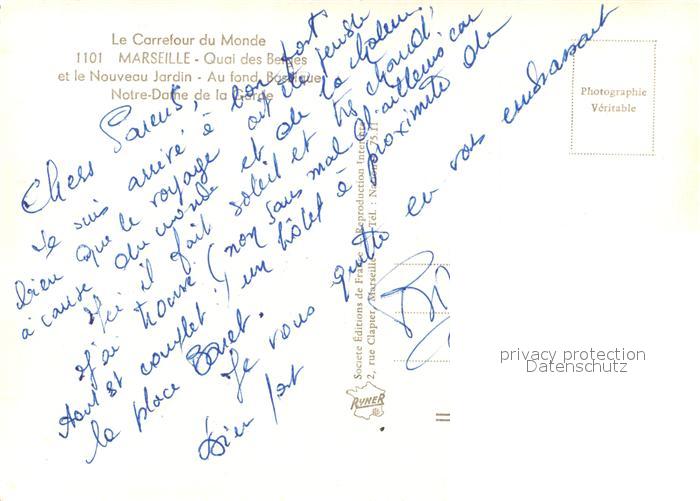 Le Carrefour du Monde
1101 MARSEILLE - Quai des Belges
et le Nouveau Jardin - Au fond, Basilique
Notre-Dame de la Garde
Photographie
Véritable
Chers Parents,
Je suis arrivé à bon port
bien que le voyage ait été pénible
à cause du monde et de la chaleur.
Ici il fait soleil et très chaud,
J'ai trouvé (non sans mal d'ailleurs, car
tout est complet!) un hôtel à proximité de
la place
Je vous quitte en vous embrassant
bien fort
Société Éditions de France - Reproduction Interdite
2, rue Clapier, Marseille - Tél. : National
RYNER
privacy protection
Datenschutz